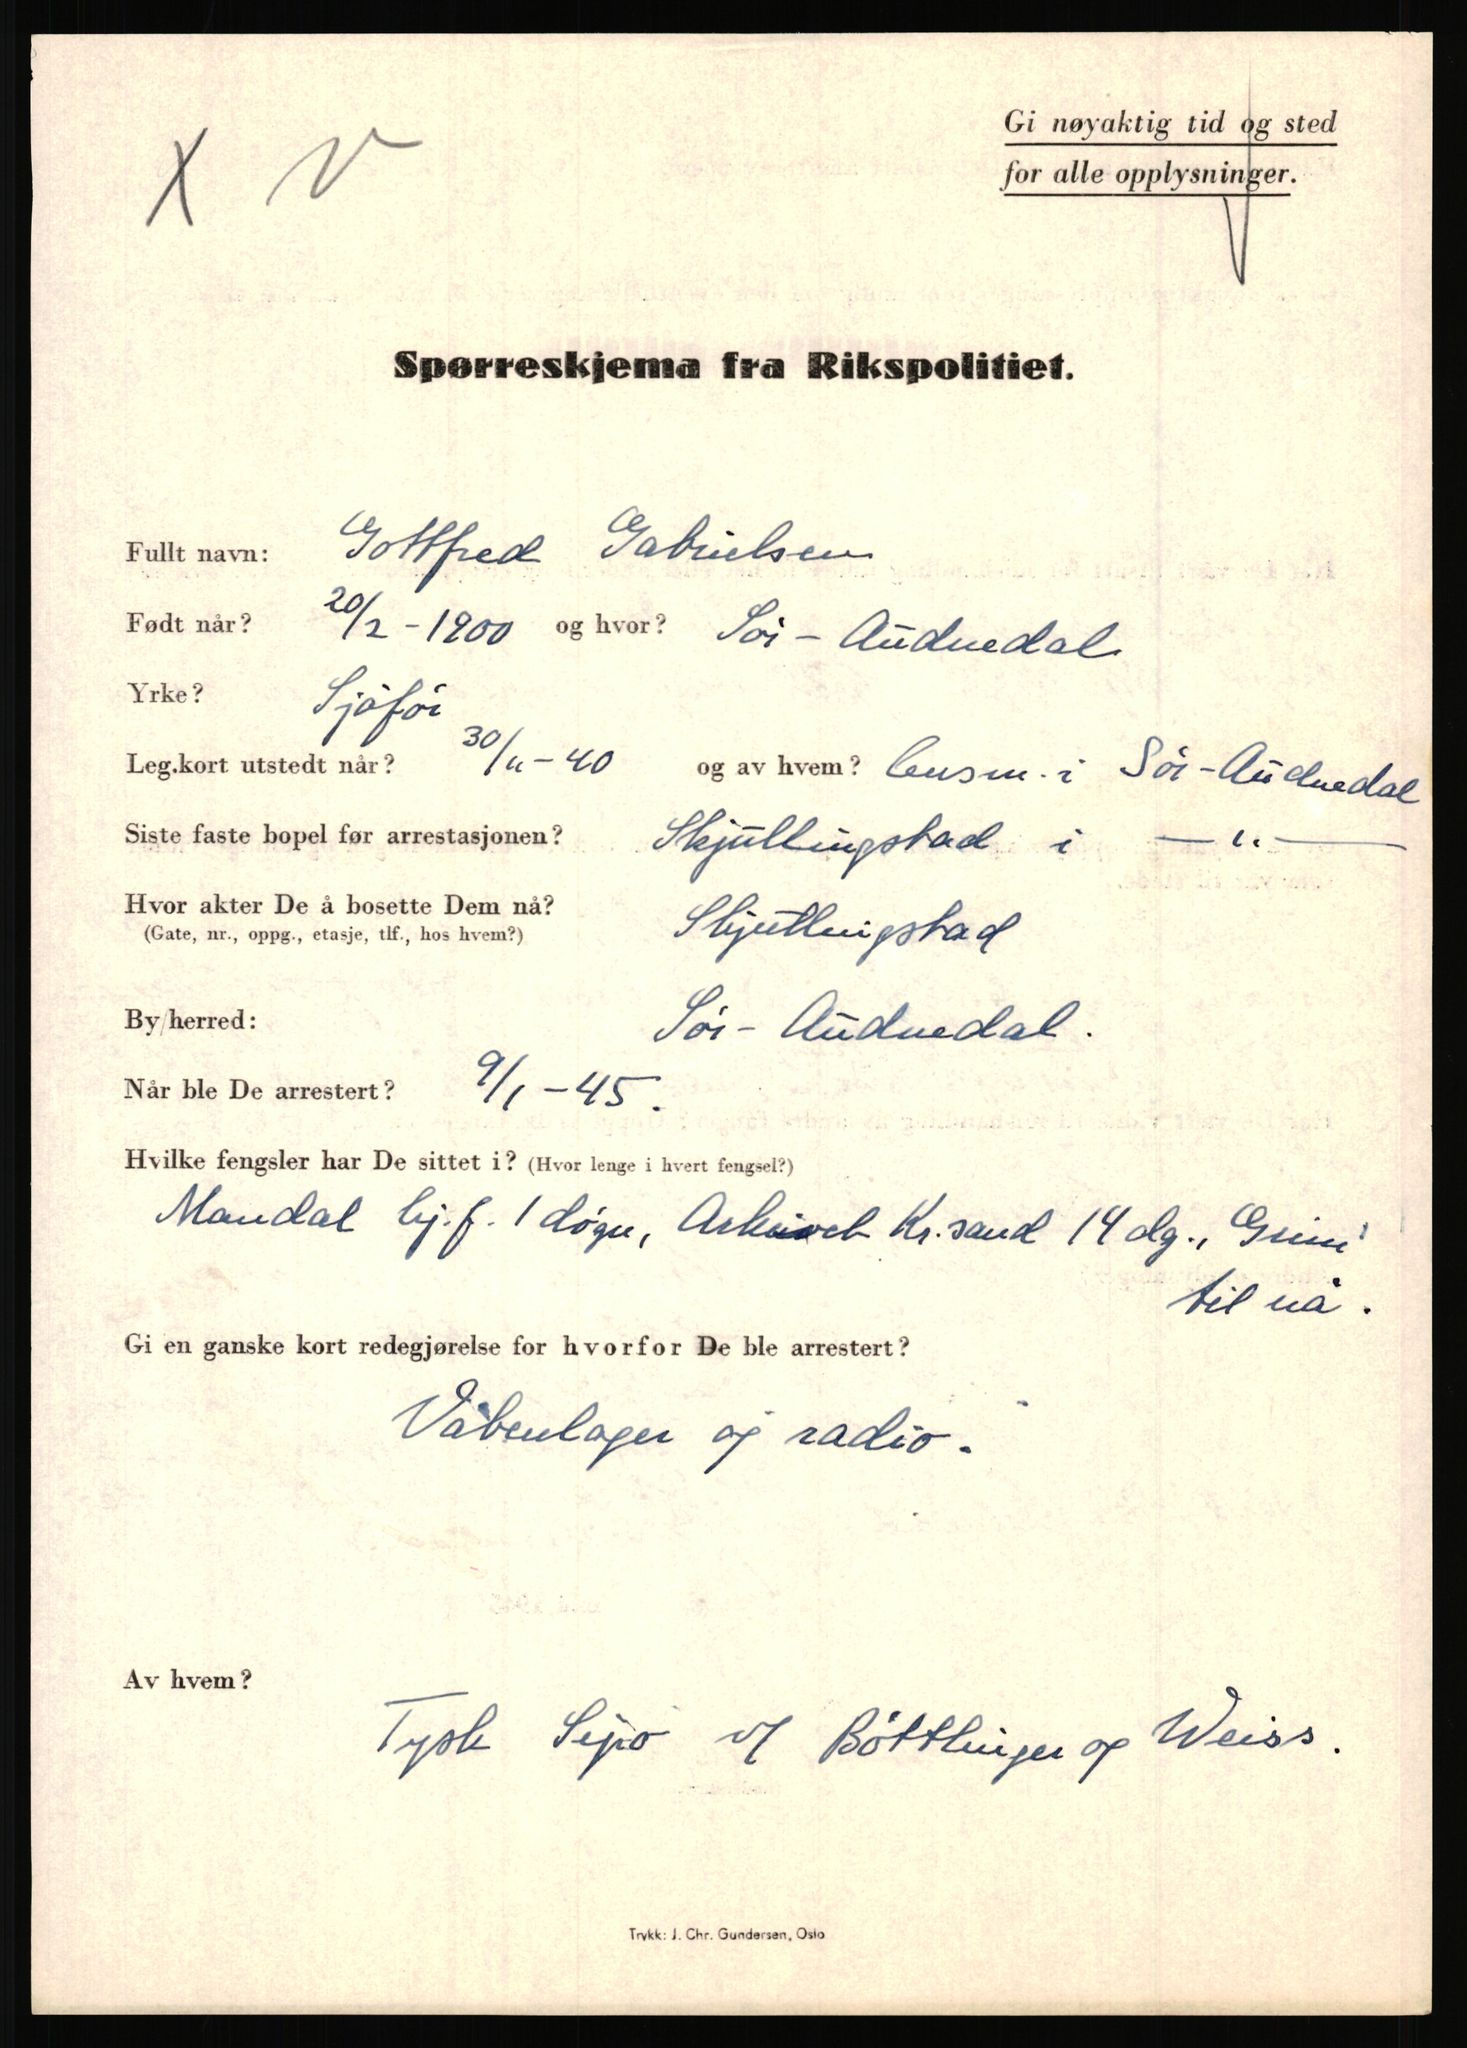 X V
Gi nøyaktig tid og sted
for alle opplysninger.
Spørreskjema fra Rikspolitiet.
Fullt navn: Gottfred Gabrielsen
Født når? 20/2 - 1900 og hvor? Sör - Audnedal
Yrke? Sjåför
Leg.kort utstedt når? 30/11 - 40 og av hvem? lensm. i Sör - Audnedal
Siste faste bopel før arrestasjonen? Skjüllingstad i — " —
Hvor akter De å bosette Dem nå? Skjüllingstad
(Gate, nr., oppg., etasje, tlf., hos hvem?)
By/herred: Sör - Audnedal.
Når ble De arrestert? 9/1 - 45.
Hvilke fengsler har De sittet i? (Hvor lenge i hvert fengsel?)
Mandal hj.f. 1 døgn, Arkivet Kr.sand 14 dg., Grini
til nå.
Gi en ganske kort redegjørelse for hvorfor De ble arrestert?
Våbenlager og radio.
Av hvem?
Tysk Sipo v/ Böttlinger og Weiss.
Trykk: J. Chr. Gundersen, Oslo